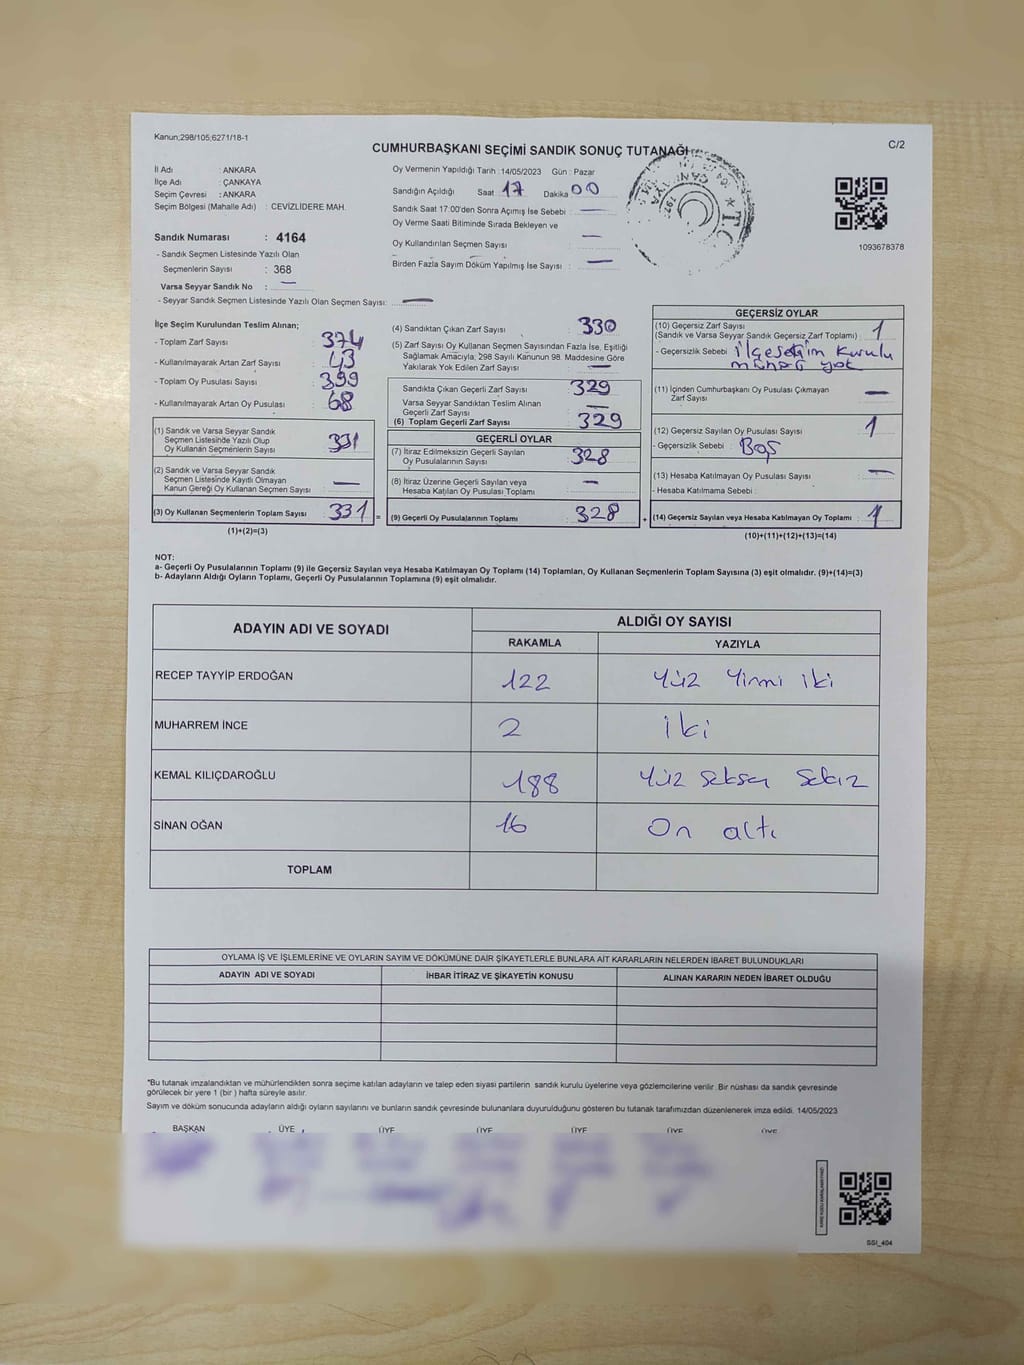 Kanun;298/105;6271/18-1
C/2
CUMHURBAŞKANI SEÇİMİ SANDIK SONUÇ TUTANAĞI
İl Adı : ANKARA
İlçe Adı : ÇANKAYA
Seçim Çevresi : ANKARA
Seçim Bölgesi (Mahalle Adı) : CEVİZLİDERE MAH.
Sandık Numarası : 4164
- Sandık Seçmen Listesinde Yazılı Olan
Seçmenlerin Sayısı : 368
Varsa Seyyar Sandık No : —
- Seyyar Sandık Seçmen Listesinde Yazılı Olan Seçmen Sayısı: —
Oy Vermenin Yapıldığı Tarih :14/05/2023 Gün : Pazar
Sandığın Açıldığı Saat 17 Dakika 00
Sandık Saat 17:00'den Sonra Açılmış İse Sebebi : —
Oy Verme Saati Bitiminde Sırada Bekleyen ve
Oy Kullandırılan Seçmen Sayısı : —
Birden Fazla Sayım Döküm Yapılmış İse Sayısı : —
1093678378
İlçe Seçim Kurulundan Teslim Alınan;
- Toplam Zarf Sayısı : 374
- Kullanılmayarak Artan Zarf Sayısı : 43
- Toplam Oy Pusulası Sayısı : 399
- Kullanılmayarak Artan Oy Pusulası : 68
(1) Sandık ve Varsa Seyyar Sandık
Seçmen Listesinde Yazılı Olup
Oy Kullanan Seçmenlerin Sayısı : 331
(2) Sandık ve Varsa Seyyar Sandık
Seçmen Listesinde Kayıtlı Olmayan
Kanun Gereği Oy Kullanan Seçmen Sayısı : —
(3) Oy Kullanan Seçmenlerin Toplam Sayısı : 331 =
(1)+(2)=(3)
(4) Sandıktan Çıkan Zarf Sayısı : 330
(5) Zarf Sayısı Oy Kullanan Seçmen Sayısından Fazla İse, Eşitliği
Sağlamak Amacıyla, 298 Sayılı Kanunun 98. Maddesine Göre
Yakılarak Yok Edilen Zarf Sayısı : —
Sandıkta Çıkan Geçerli Zarf Sayısı : 329
Varsa Seyyar Sandıktan Teslim Alınan
Geçerli Zarf Sayısı : —
(6) Toplam Geçerli Zarf Sayısı : 329
GEÇERLİ OYLAR
(7) İtiraz Edilmeksizin Geçerli Sayılan
Oy Pusulalarının Sayısı : 328
(8) İtiraz Üzerine Geçerli Sayılan veya
Hesaba Katılan Oy Pusulası Toplamı : —
(9) Geçerli Oy Pusulalarının Toplamı : 328 +
GEÇERSİZ OYLAR
(10) Geçersiz Zarf Sayısı
(Sandık ve Varsa Seyyar Sandık Geçersiz Zarf Toplamı) : 1
- Geçersizlik Sebebi : ilçe seçim kurulu
mührü yok
(11) İçinden Cumhurbaşkanı Oy Pusulası Çıkmayan
Zarf Sayısı : —
(12) Geçersiz Sayılan Oy Pusulası Sayısı : 1
- Geçersizlik Sebebi : Boş
(13) Hesaba Katılmayan Oy Pusulası Sayısı : —
- Hesaba Katılmama Sebebi :
(14) Geçersiz Sayılan veya Hesaba Katılmayan Oy Toplamı : 1
(10)+(11)+(12)+(13)=(14)
NOT:
a- Geçerli Oy Pusulalarının Toplamı (9) ile Geçersiz Sayılan veya Hesaba Katılmayan Oy Toplamı (14) Toplamları, Oy Kullanan Seçmenlerin Toplam Sayısına (3) eşit olmalıdır. (9)+(14)=(3)
b- Adayların Aldığı Oyların Toplamı, Geçerli Oy Pusulalarının Toplamına (9) eşit olmalıdır.
ADAYIN ADI VE SOYADI
ALDIĞI OY SAYISI
RAKAMLA YAZIYLA
RECEP TAYYİP ERDOĞAN 122 Yüz Yirmi iki
MUHARREM İNCE 2 iki
KEMAL KILIÇDAROĞLU 188 Yüz seksen sekiz
SİNAN OĞAN 16 On altı
TOPLAM
OYLAMA İŞ VE İŞLEMLERİNE VE OYLARIN SAYIM VE DÖKÜMÜNE DAİR ŞİKAYETLERLE BUNLARA AİT KARARLARIN NELERDEN İBARET BULUNDUKLARI
ADAYIN ADI VE SOYADI İHBAR İTİRAZ VE ŞİKAYETİN KONUSU ALINAN KARARIN NEDEN İBARET OLDUĞU
*Bu tutanak imzalandıktan ve mühürlendikten sonra seçime katılan adayların ve talep eden siyasi partilerin sandık kurulu üyelerine veya gözlemcilerine verilir. Bir nüshası da sandık çevresinde
görülecek bir yere 1 (bir ) hafta süreyle asılır.
Sayım ve döküm sonucunda adayların aldığı oyların sayılarını ve bunların sandık çevresinde bulunanlara duyurulduğunu gösteren bu tutanak tarafımızdan düzenlenerek imza edildi. 14/05/2023
BAŞKAN ÜYE ÜYE ÜYE ÜYE ÜYE ÜYE
SSI_404